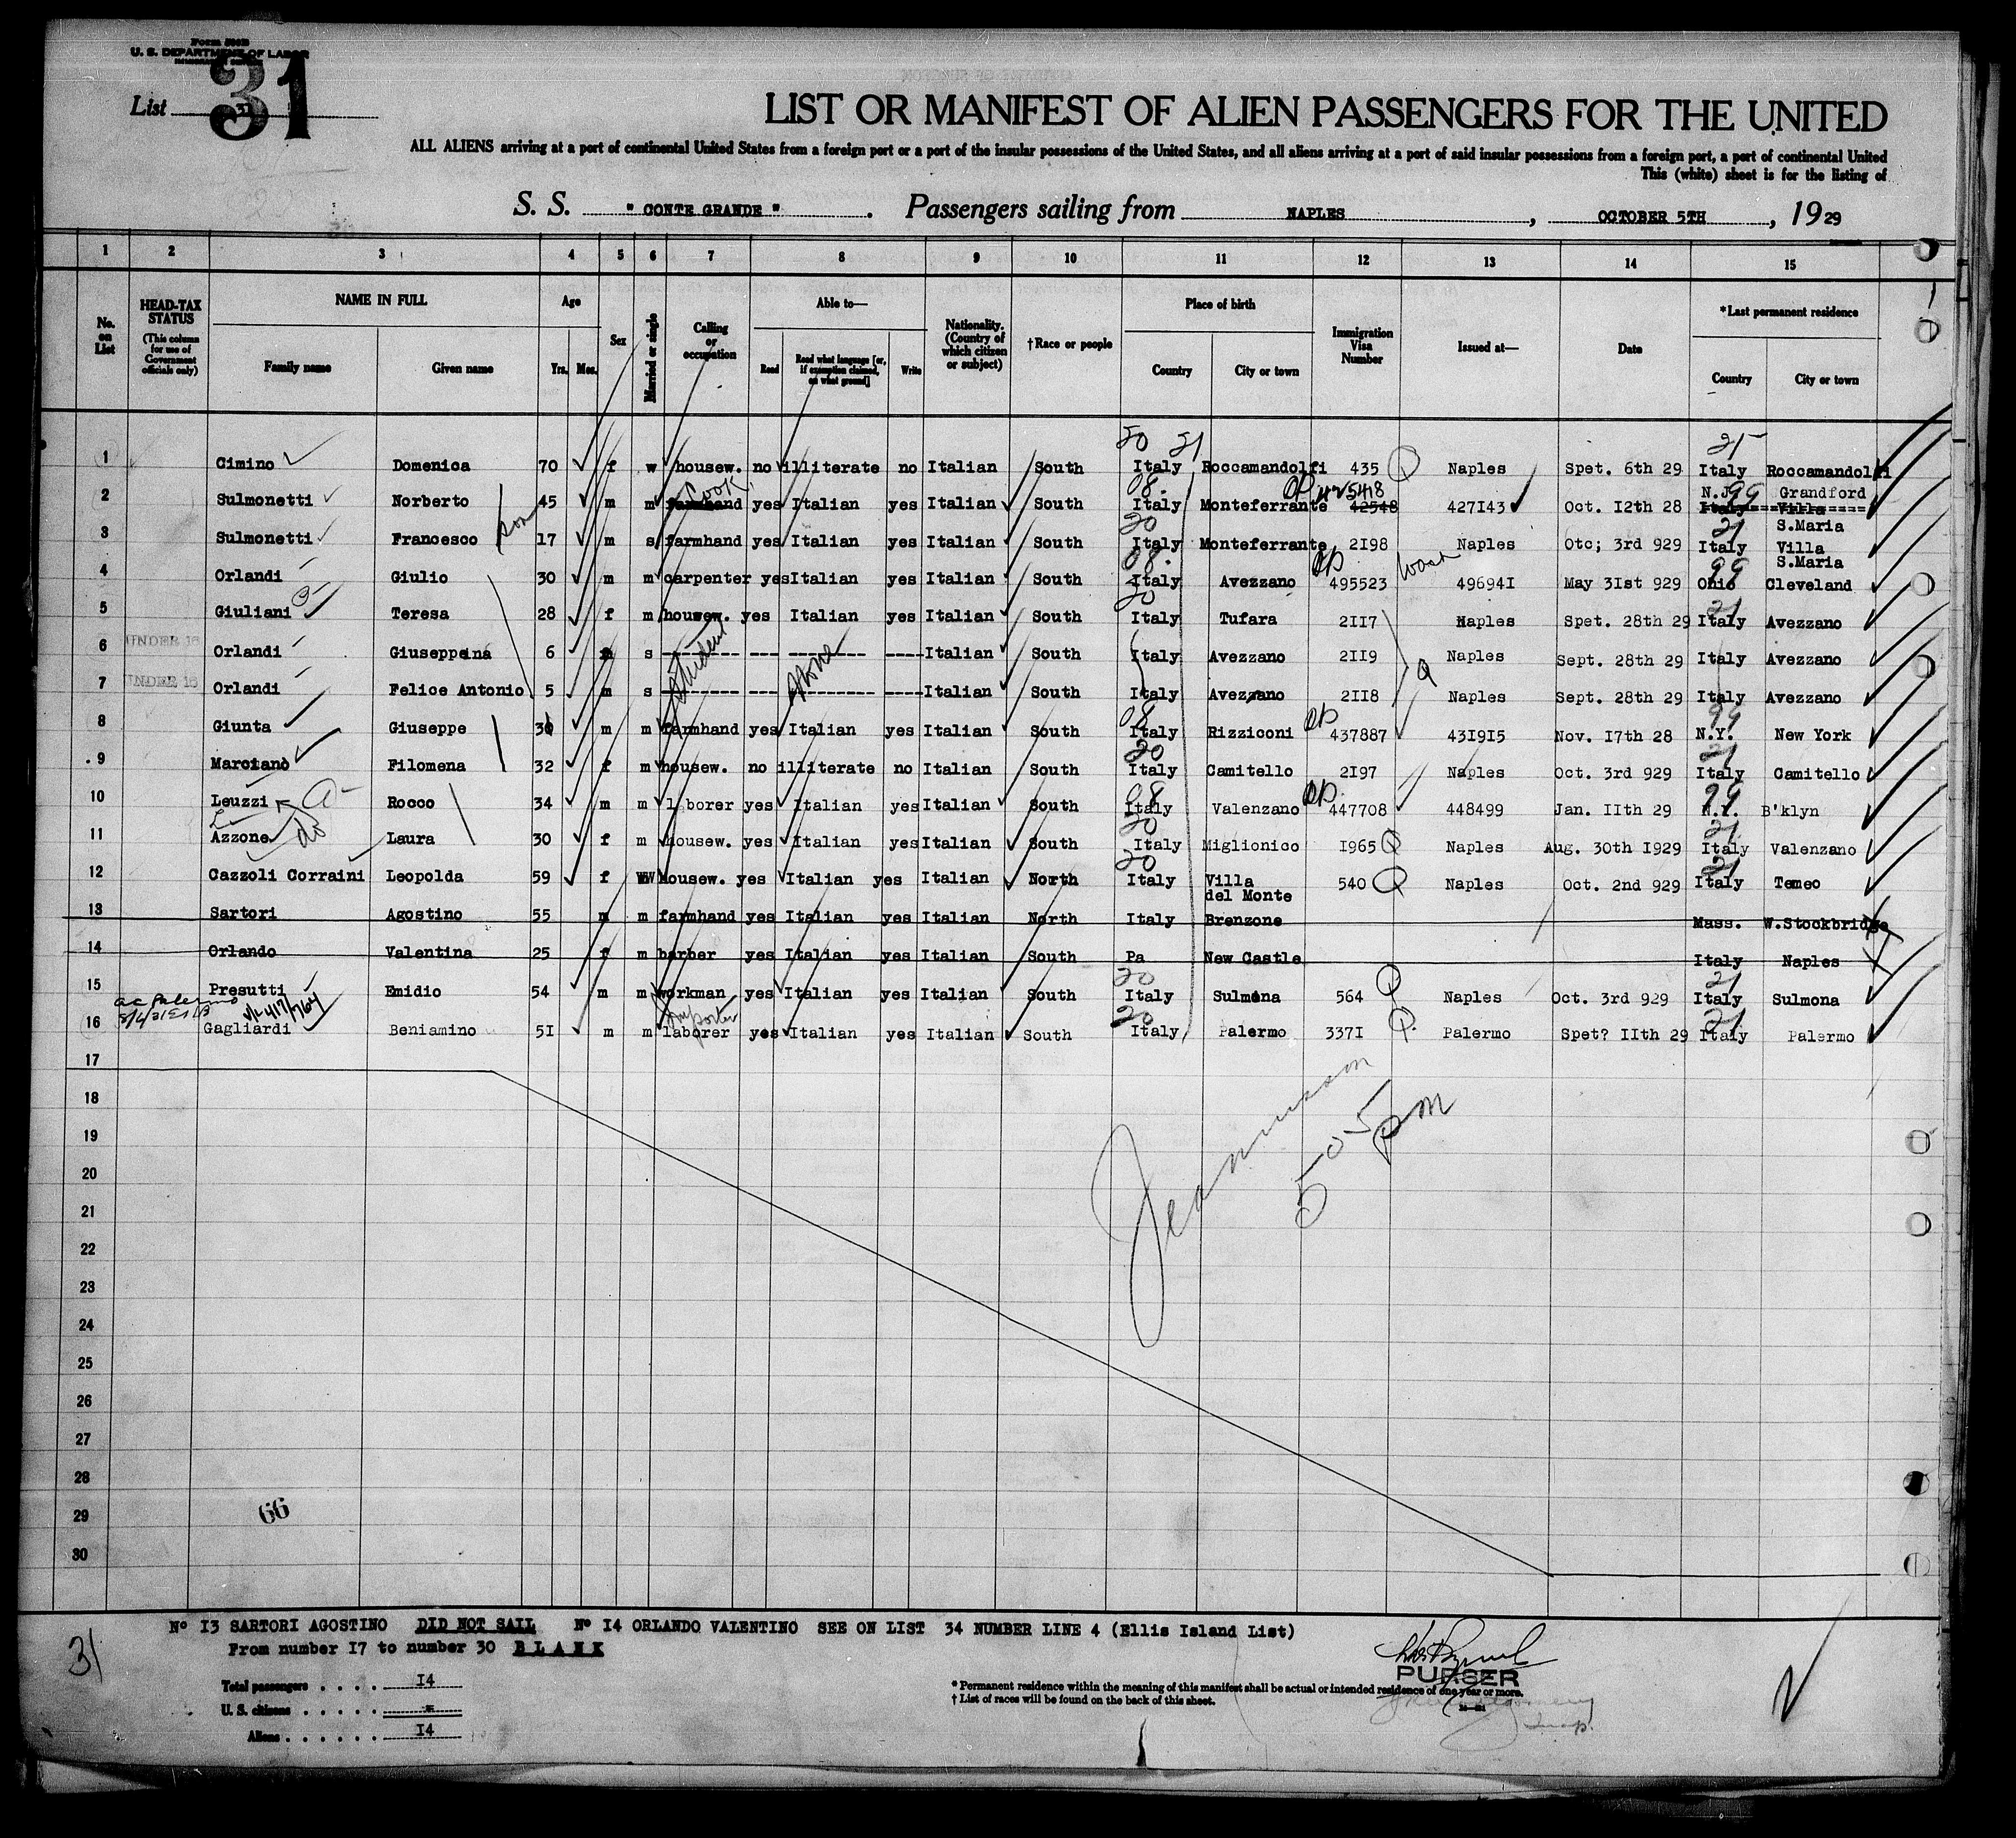 Form 500B
U. S. DEPARTMENT OF LABOR
List 31
31
LIST OR MANIFEST OF ALIEN PASSENGERS FOR THE UNITED
ALL ALIENS arriving at a port of continental United States from a foreign port or a port of the insular possessions of the United States, and all aliens arriving at a port of said insular possessions from a foreign port, a port of continental United
This (white) sheet is for the listing of
S. S. " CONTE GRANDE " . Passengers sailing from NAPLES , OCTOBER 5TH , 1929
1 2 3 4 5 6 7 8 9 10 11 12 13 14 15
No. on List HEAD-TAX STATUS (This column for use of Government officials only) NAME IN FULL Family name Given name Age Yrs. Mos. Sex Married or single Calling or occupation Able to— Read Read what language [or, if exemption claimed, on what ground] Write Nationality. (Country of which citizen or subject) †Race or people Place of birth Country City or town Immigration Visa Number Issued at— Date *Last permanent residence Country City or town
20 21 21
1 Cimino Domenica 70 f w housew. no illiterate no Italian South Italy Roccamandolfi 435 Q Naples Spet. 6th 29 Italy Roccamandolfi
Cook 08. OP 425418 N.J. 99 Grandford
2 Sulmonetti Norberto 45 m m farmhand yes Italian yes Italian South Italy Monteferrante 42548 427143 Oct. 12th 28 Italy Villa
son 20 21 S.Maria
3 Sulmonetti Francesco 17 m s farmhand yes Italian yes Italian South Italy Monteferrante 2198 Naples Otc; 3rd 929 Italy Villa
S.Maria
08. 99
4 Orlandi Giulio 30 m m carpenter yes Italian yes Italian South Italy Avezzano 495523 496941 May 31st 929 Ohio Cleveland
20 21
5 Giuliani Teresa 28 f m housew. yes Italian yes Italian South Italy Tufara 2117 Naples Spet. 28th 29 Italy Avezzano
UNDER 16
6 Orlandi Giuseppeina 6 s Student None Italian South Italy Avezzano 2119 Naples Sept. 28th 29 Italy Avezzano
UNDER 16
7 Orlandi Felice Antonio 5 m s Italian South Italy Avezzano 2118 Q Naples Sept. 28th 29 Italy Avezzano
08 99
8 Giunta Giuseppe 36 m m farmhand yes Italian yes Italian South Italy Rizziconi 437887 431915 Nov. 17th 28 N.Y. New York
20 21
9 Marcianò Filomena 32 f m housew. no illiterate no Italian South Italy Camitello 2197 Naples Oct. 3rd 929 Italy Camitello
08 99
10 Leuzzi Rocco 34 m m laborer yes Italian yes Italian South Italy Valenzano 447708 448499 Jan. 11th 29 N.Y. B'klyn
20 21
11 Azzone do Laura 30 f m housew. yes Italian yes Italian South Italy Miglionico 1965 Q Naples Aug. 30th 1929 Italy Valenzano
20 21
12 Cazzoli Corraini Leopolda 59 f W housew. yes Italian yes Italian North Italy Villa del Monte 540 Q Naples Oct. 2nd 929 Italy Temeo
13 Sartori Agostino 55 m m farmhand yes Italian yes Italian North Italy Brenzone Mass. W.Stockbridge
14 Orlando Valentina 25 f m barber yes Italian yes Italian South Pa New Castle Italy Naples
20 21
15 Presutti Emidio 54 m m workman yes Italian yes Italian South Italy Sulmona 564 Q Naples Oct. 3rd 929 Italy Sulmona
ac Palermo Importer 20 21
16 Gagliardi Beniamino 51 m m laborer yes Italian yes Italian South Italy Palermo 3371 Q. Palermo Spet? 11th 29 Italy Palermo
17
18
19
20
21
22
23
24
25
26
27
28
29
30
5 05 pm
66
No 13 SARTORI AGOSTINO DID NOT SAIL No 14 ORLANDO VALENTINO SEE ON LIST 34 NUMBER LINE 4 (Ellis Island List)
From number 17 to number 30 BLANK
31
Total passengers . . . . 14
U. S. citizens . . . . . =
Aliens . . . . . . 14
PURSER
* Permanent residence within the meaning of this manifest shall be actual or intended residence of one year or more.
† List of races will be found on the back of this sheet.